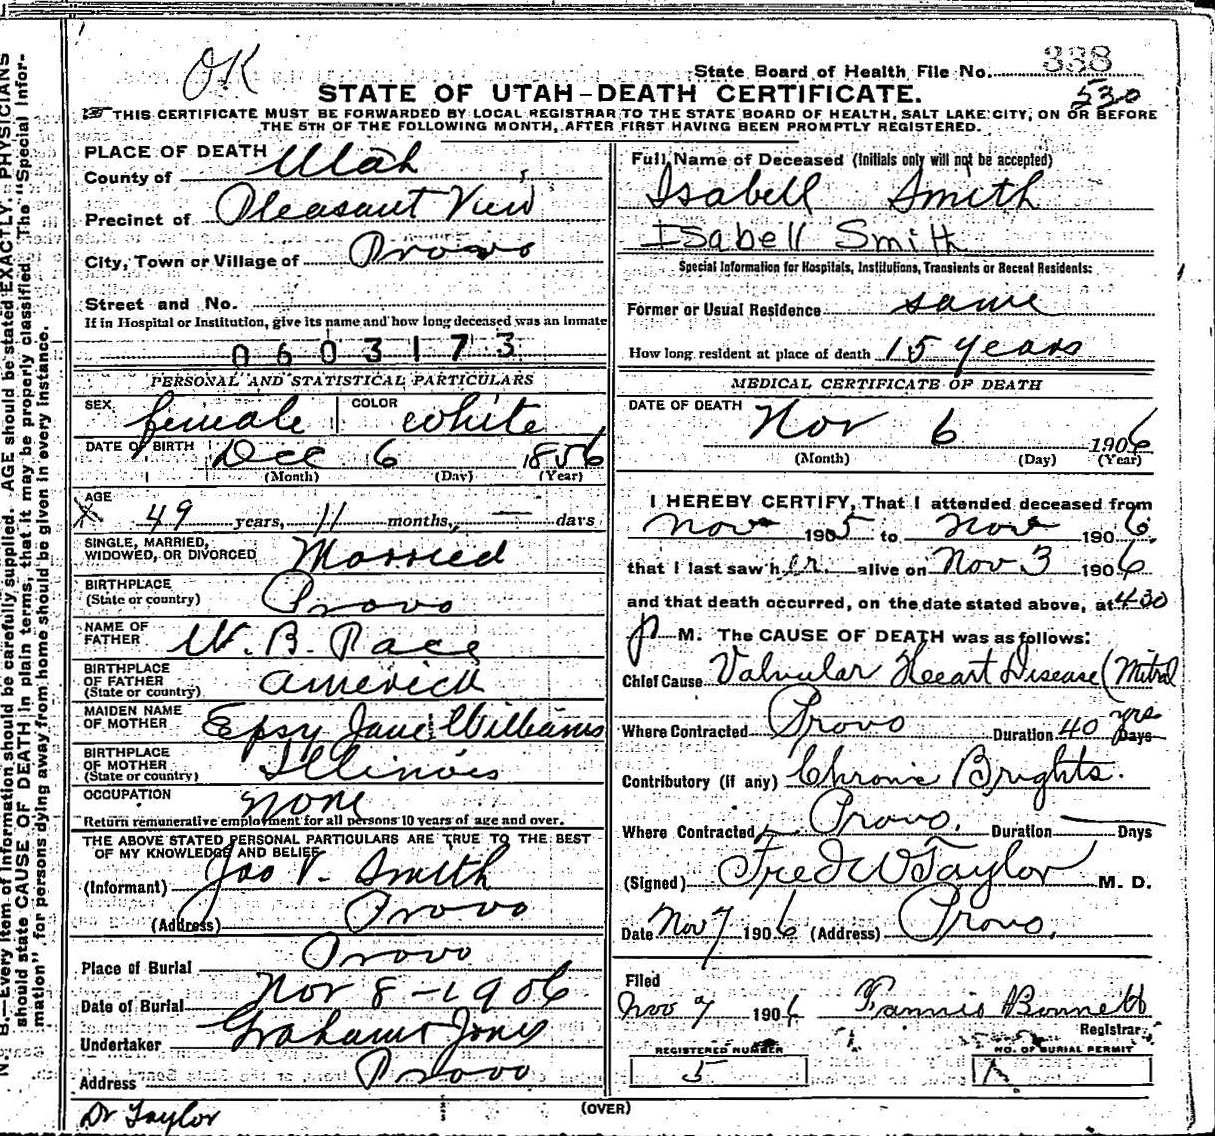 OK
State Board of Health File No. 338
STATE OF UTAH-DEATH CERTIFICATE.
530
THIS CERTIFICATE MUST BE FORWARDED BY LOCAL REGISTRAR TO THE STATE BOARD OF HEALTH, SALT LAKE CITY, ON OR BEFORE
THE 5TH OF THE FOLLOWING MONTH, AFTER FIRST HAVING BEEN PROMPTLY REGISTERED.
PLACE OF DEATH
County of Utah
Precinct of Pleasant View
City, Town or Village of Provo
Street and No.
If in Hospital or Institution, give its name and how long deceased was an inmate
0603173
PERSONAL AND STATISTICAL PARTICULARS
SEX female COLOR white
DATE OF BIRTH Dec 6 1856
(Month) (Day) (Year)
AGE
X 49 years, 11 months, — days
SINGLE, MARRIED,
WIDOWED, OR DIVORCED Married
BIRTHPLACE
(State or country) Provo
NAME OF
FATHER W. B. Pace
BIRTHPLACE
OF FATHER
(State or country) America
MAIDEN NAME
OF MOTHER Epsy Jane Williams
BIRTHPLACE
OF MOTHER
(State or country) Illinois
OCCUPATION none
Return remunerative employment for all persons 10 years of age and over.
THE ABOVE STATED PERSONAL PARTICULARS ARE TRUE TO THE BEST
OF MY KNOWLEDGE AND BELIEF
(Informant) Jas V. Smith
(Address) Provo
Place of Burial Provo
Date of Burial Nov 8-1906
Undertaker Graham & Jones
Address Provo
Dr Taylor
Full Name of Deceased (Initials only will not be accepted)
Isabell Smith
Isabell Smith
Special Information for Hospitals, Institutions, Transients or Recent Residents:
Former or Usual Residence same
How long resident at place of death 15 years
MEDICAL CERTIFICATE OF DEATH
DATE OF DEATH
Nov 6 1906
(Month) (Day) (Year)
I HEREBY CERTIFY, That I attended deceased from
Nov 1905 to Nov 1906,
that I last saw h er alive on Nov 3 1906
and that death occurred, on the date stated above, at 430
P M. The CAUSE OF DEATH was as follows:
Chief Cause Valvular Heart Disease (Mitral
Where Contracted Provo Duration 40 yrs Days
Contributory (if any) Chronic Brights.
Where Contracted Provo. Duration — Days
(Signed) Fred W Taylor M. D.
Date Nov 7 1906 (Address) Provo.
Filed
Nov 7 1906 Bonnett
Registrar
REGISTERED NUMBER
5
NO. OF BURIAL PERMIT
(OVER)
N. B.—Every item of information should be carefully supplied. AGE should be stated EXACTLY. PHYSICIANS
should state CAUSE OF DEATH in plain terms, that it may be properly classified. The "Special Infor-
mation" for persons dying away from home should be given in every instance.